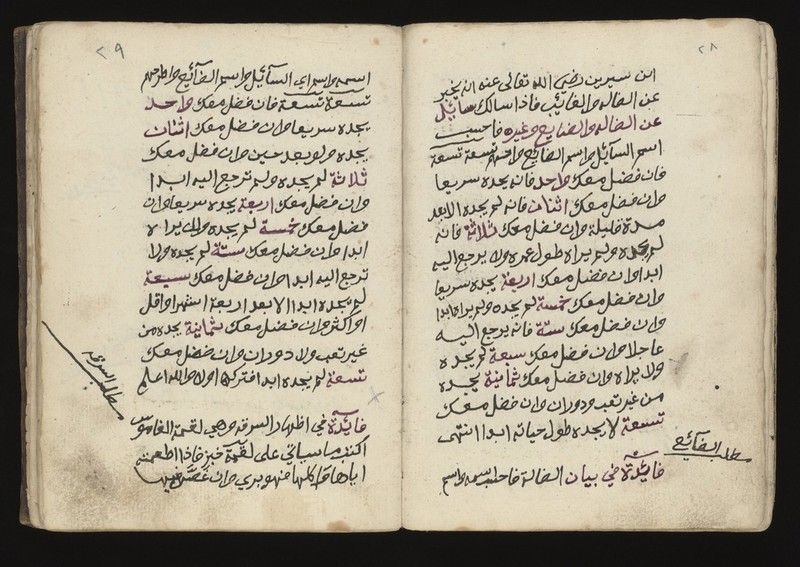 ٢٨
ابن سيرين رضي الله تعالى عنه انه يخبر
عن الضاله والغائب فاذا سالك سائيل
عن الضاله والضايع وغيره فاحسب
اسم السآئيل واسم الضآئيع واطرحهم تسعة تسعة
فان فضل معك واحد فانه يجده سريعا
وان فضل معك اثنان فانه لم يجده الا بعد
مدة قليلة وان فضل معك ثلاثة فانه
لم يجده ولم يراه طول عمره ولا يرجع اليه
ابدا وان فضل معك اربعة يجده سريعا
وان فضل معك خمسة لم يجده ولم يراه ابدا
وان فضل معك ستة فانه يرجع اليه
عاجلا وان فضل معك سبعة لم يجده
ولا يراه وان فضل معك ثمانية يجده
من غير تعب ودوران وان فضل معك
تسعة لا يجده طول حياته ابدا انتهى
مطلب الضآئع
فايدة في بيان الضالة فاحسب اسمه واسم
٢٩
اسمه واسم اي السآئيل واسم الضآئيع واطرحهم
تسعة تسعة فان فضل معك واحد
يجده سريعا وان فضل معك اثنان
يجده ولو بعد حين وان فضل معك
ثلاثة لم يجده ولم ترجع اليه ابدا
وان فضل معك اربعة يجده سريعا وان
فضل معك خمسة لم يجده ولن يراه
ابدا وان فضل معك ستة لم يجده ولا
ترجع اليه ابدا وان فضل معك سبعة
لم يجده ابدا الا بعد اربعة اشهر او اقل
او اكثر وان فضل معك ثمانية يجده من
غير تعب ولا دوران وان فضل معك
تسعة لم يجده ابدا والله اعلم
مطلب السرقه
فايدة في اظهار السرقه وهي لقمة
اكتب ما سياتي على لقمة خبز فاذا اطعمته
اياها واكلها فهو بري وان غص فيها